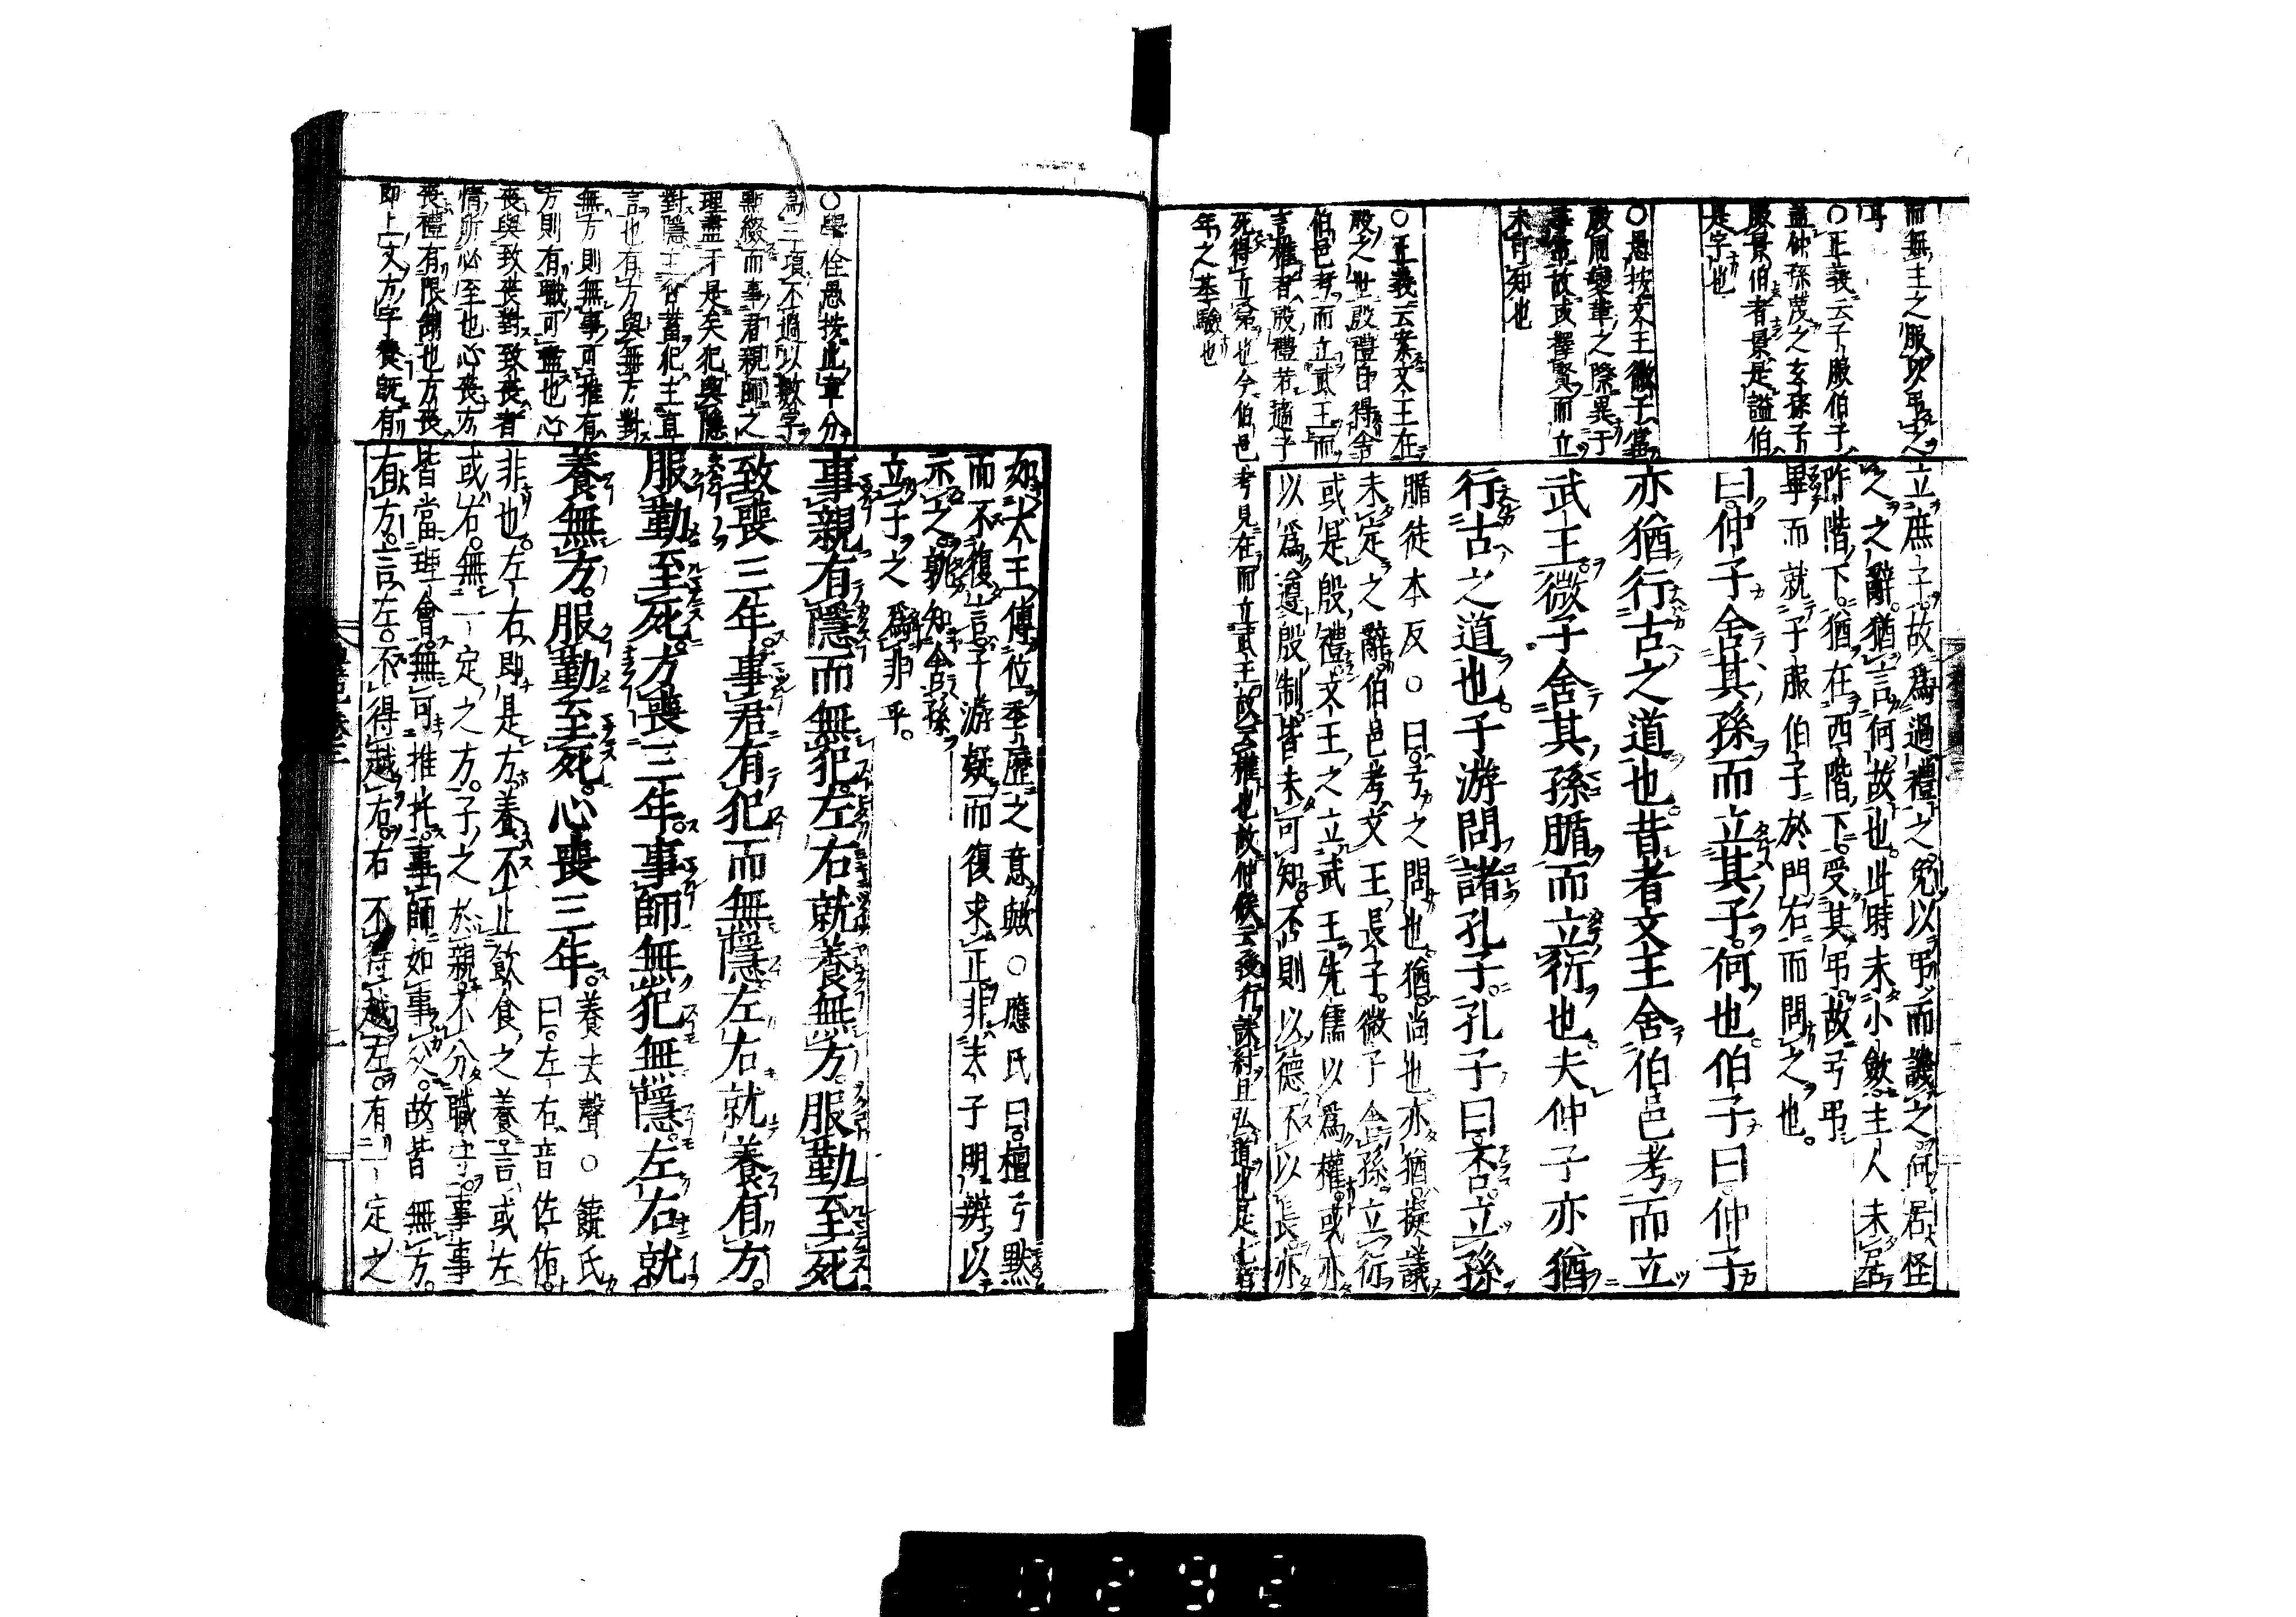 而無主之服以弔之
耳
○正義云子服伯子
蓋仲孫蔑之玄孫子
服景伯者景是謚伯
是字也
○愚按文王微子當
殷周變革之際異于
事常故或擇賢而立
未可知也
○正義云案文王在
殷之世殷禮自得舍
伯邑考而立武王而
言權者殷禮若適子
死得立弟也今伯邑考見在而立武王故云權也故仲候云發行誅紂且弘道也是七百
年之基驗也
立庶子故爲過禮之免以弔而譏之何居怪
之之辭猶言何故也此時未小斂主人未居
阼階下猶在西階下受其弔故弓弔
畢而就子服伯子於門右而問之也
曰仲子舍其孫而立其子何也伯子曰仲子
亦猶行古之道也昔者文王舍伯邑考而立
武王微子舍其孫腯而立衍也夫仲子亦猶
行古之道也子游問諸孔子孔子曰否立孫
腯徒本反○曰弓之問也猶尚也亦猶擬議
未定之辭伯邑考文王長子微子舍孫立衍
或是殷禮文王之立武王先儒以爲權或亦
以爲遵殷制皆未可知否則以德不以長亦
如太王傳位季歷之意歟○應氏曰檀弓默
而不復言子游疑而復求正非夫子明辨以
示之孰知舍孫
立子之爲非乎
事親有隱而無犯左右就養無方服勤至死
致喪三年事君有犯而無隱左右就養有方
服勤至死方喪三年事師無犯無隱左右就
養無方服勤至死心喪三年養去聲○饒氏
曰左右音佐佑
非也左右即是方養不止飲食之養言或左
或右無一定之方子之於親不分職守事事
皆當理會無可推托事師如事父故皆無方
有方言左不得越右右不得越左有一定之
○學佺愚按此章分
爲三項不過以數字
點綴而事君親師之
理盡于是矣犯與隱
對隱主
言也有方與無方對
無方則無事可推有
方則有職可盡也心
喪與致喪對致喪者
情所必至也心喪方
喪禮有限制也方喪
即上文方字養既有